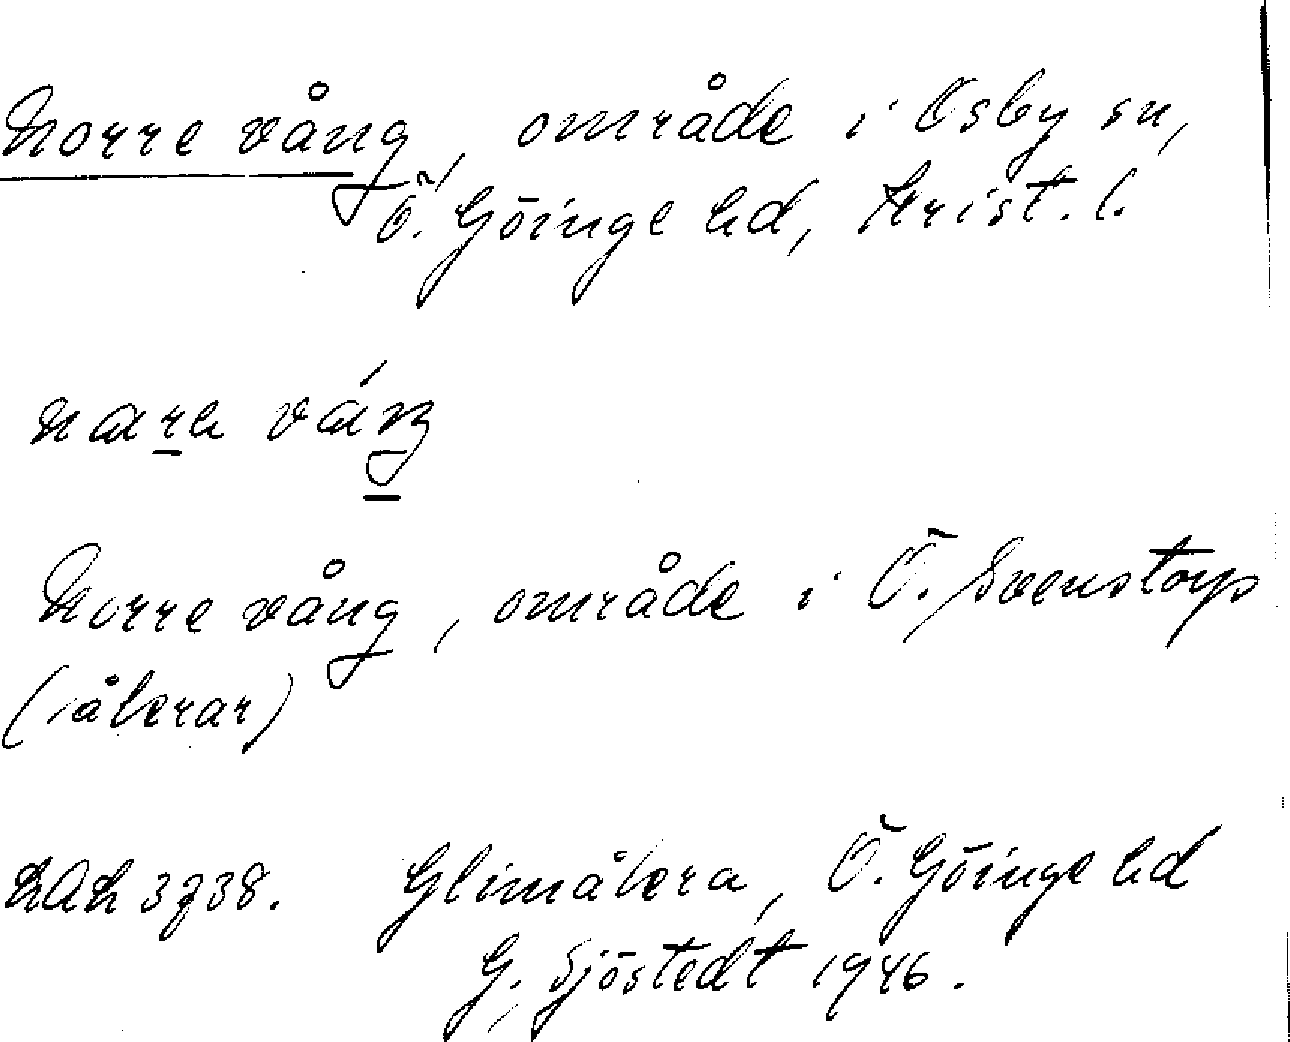 Norre vång, område i Osby sn,
Ö. Göinge hd, Krist. l.
nara váŋ
Norre vång, område i Ö. Svenstorp
(åkrar)
3738. Glimåkra, Ö. Göinge hd
G. Sjöstedt 1946.